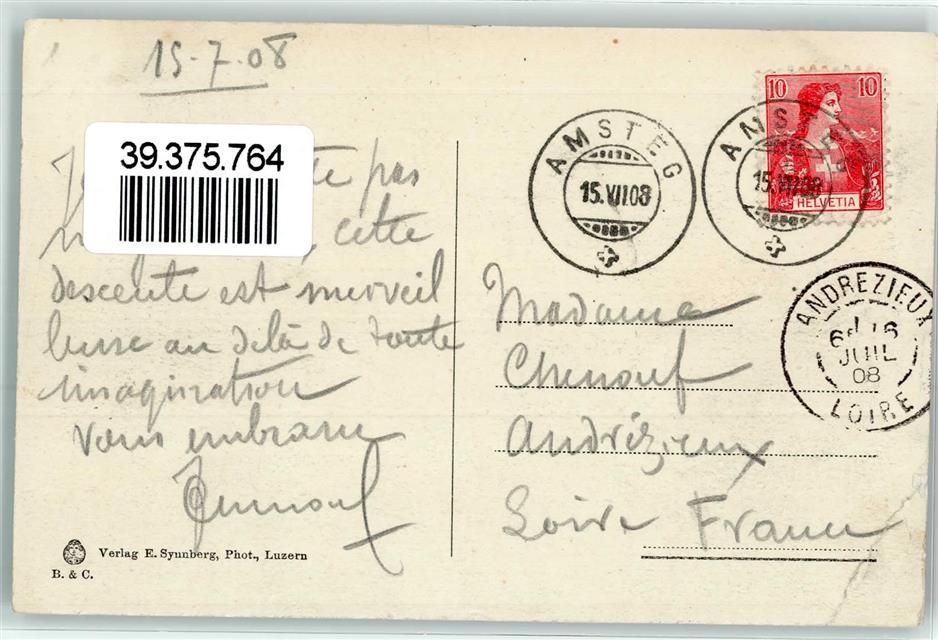 15-7-08
39.375.764
pas
cette
descente est merveil
leuse au delà de toute
imagination
Vous embrasse
10 10
HELVETIA
AMSTEG
15.VII.08
AMSTEG
15.VII.08
ANDREZIEUX
16
JUIL
08
LOIRE
Madame
Chenouf
Andrézieux
Loire France
Verlag E. Synnberg, Phot., Luzern
B. & C.